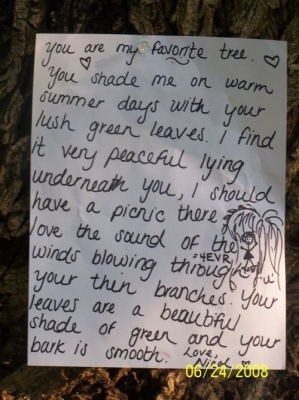 you are my favorite tree.
You shade me on warm
summer days with your
lush green leaves. I find
it very peaceful lying
underneath you, I should
have a picnic there. I
love the sound of the
winds blowing through
= 4EVR
your thin branches. Your
leaves are a beautiful
shade of green and your
bark is smooth. Love,
06/24/2008